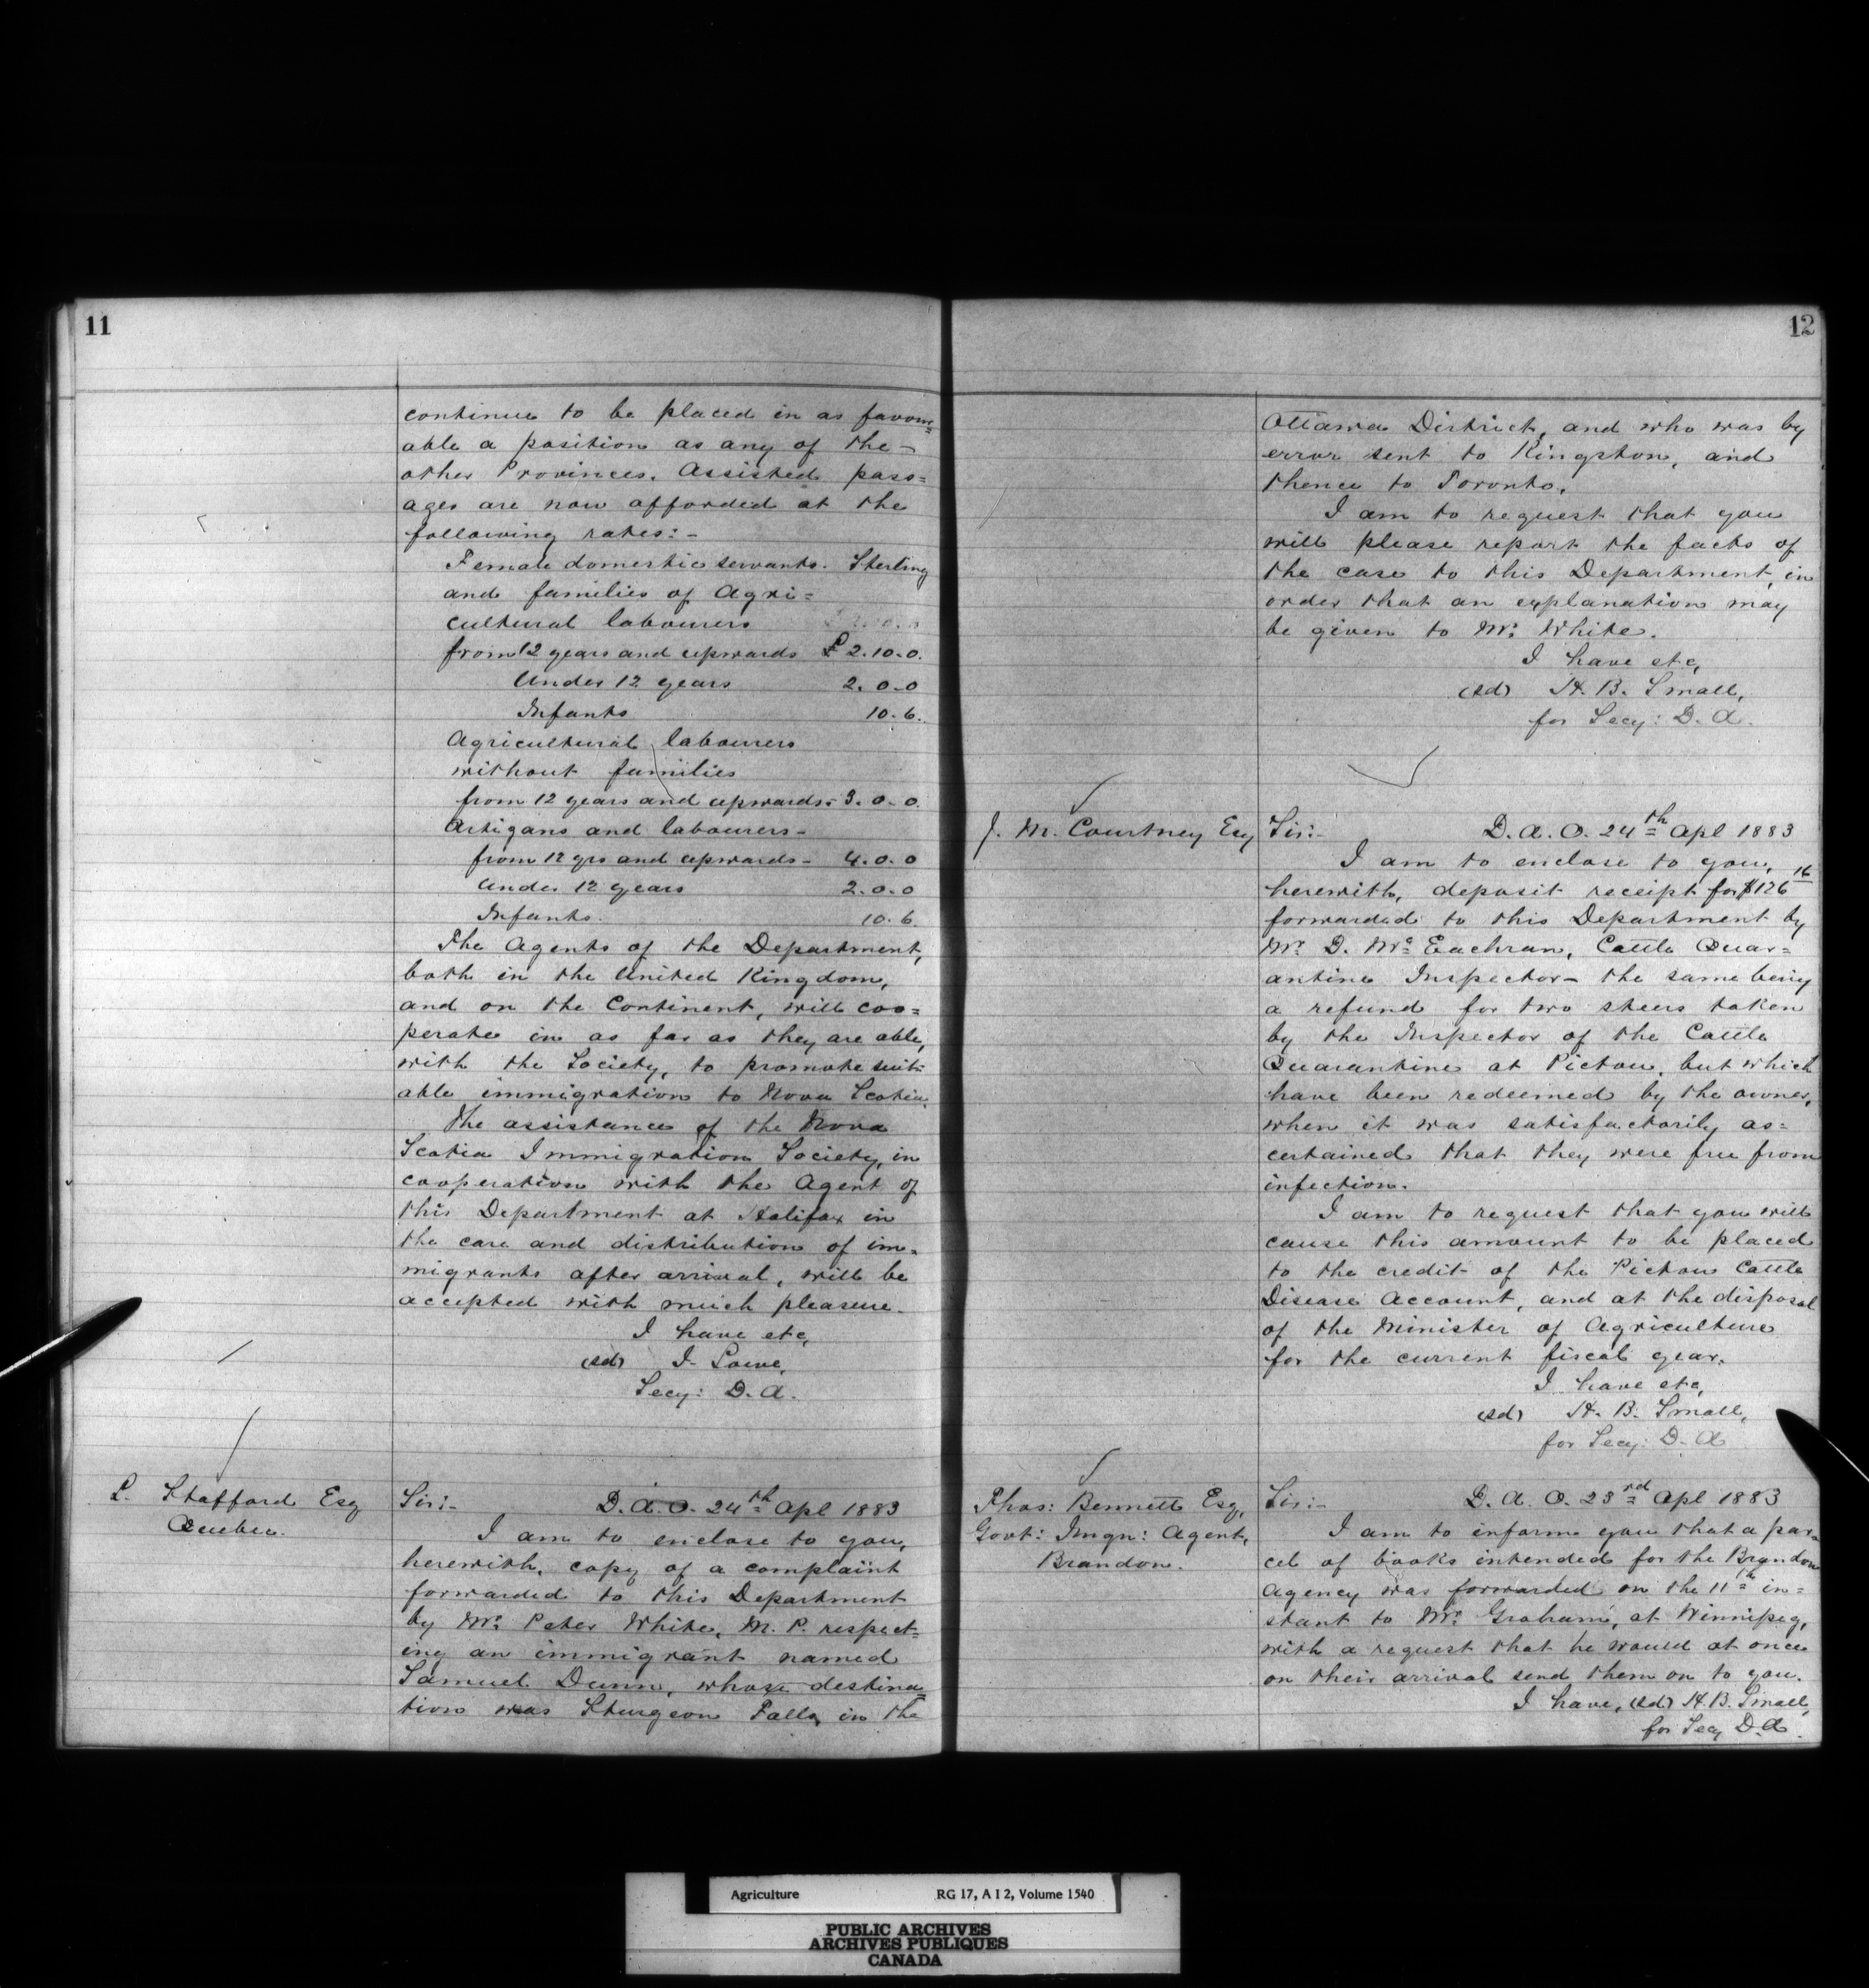 11
continue to be placed in as favour=
able a position as any of the -
other Provinces. Assisted pass=
ages are now afforded at the
following rates:-
Female domestic servants. Sterling
and families of Agri=
cultural labourers
from 12 years and upwards £ 2.10.0.
Under 12 years 2.0.0
Infants 10.6.
Agricultural labourers
without families
from 12 years and upwards- 3.0.0.
Artizans and labourers-
from 12 yrs and upwards- 4.0.0
Under 12 years 2.0.0
Infants. 10.6.
The Agents of the Department,
both in the United Kingdom,
and on the Continent, will coo=
perate in as far as they are able,
with the Society, to promote suit-
able immigration to Nova Scotia.
The assistance of the Nova
Scotia Immigration Society, in
cooperation with the Agent of
this Department at Halifax in
the care and distribution of im=
migrants after arrival, will be
accepted with much pleasure.
I have etc,
(sd) J. Lowe,
Secy: D. A.
L. Stafford Esq
Quebec.
Sir:- D. A. O. 24th Apl 1883
I am to enclose to you,
herewith, copy of a complaint
forwarded to this Department
by Mr. Peter White, M. P. respect=
ing an immigrant named
Samuel Dunn, whose destina=
tion was Sturgeon Falls, in the
12
Ottawa District, and who was by
error sent to Kingston, and
thence to Toronto.
I am to request that you
will please report the facts of
the case to this Department, in
order that an explanation may
be given to Mr. White.
I have etc,
(sd) H. B. Small,
for Secy: D. A.
J. M. Courtney Esq
Sir:- D. A. O. 24th Apl 1883
I am to enclose to you,
herewith, deposit receipt for $126 16
forwarded to this Department by
Mr. D. Mc Eachran, Cattle Quar=
antine Inspector- the same being
a refund for two steers taken
by the Inspector of the Cattle
Quarantine at Pictou, but which
have been redeemed by the owner,
when it was satisfactorily as=
certained that they were free from
infection.
I am to request that you will
cause this amount to be placed
to the credit of the Pictou Cattle
Disease Account, and at the disposal
of the Minister of Agriculture
for the current fiscal year.
I have etc,
(sd) H. B. Small,
for Secy: D. A
Thos: Bennett Esq,
Govt: Imgn: Agent,
Brandon.
Sir:- D. A. O. 23rd Apl 1883
I am to inform you that a par=
cel of books intended for the Brandon
Agency was forwarded on the 11th in=
stant to Mr. Grahame, at Winnipeg,
with a request that he would at once
on their arrival send them on to you.
I have, (sd) H. B. Small,
for Secy D. A.
Agriculture RG 17, A I 2, Volume 1540
PUBLIC ARCHIVES
ARCHIVES PUBLIQUES
CANADA